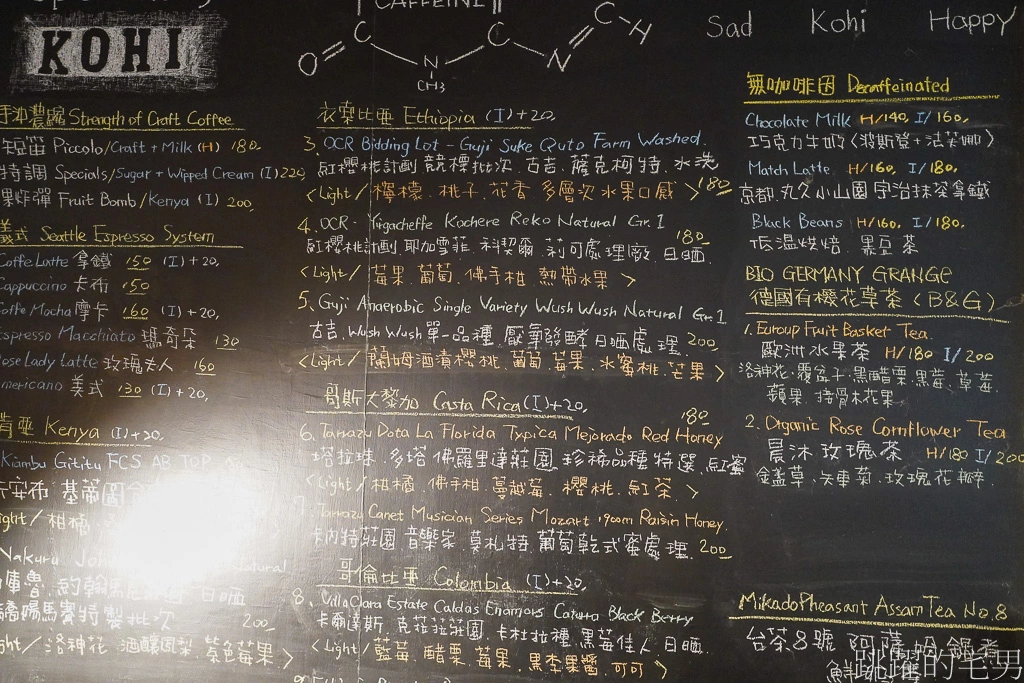 KOHI
CAFFEINE
O C N CH₃ C N C H
Sad Kohi Happy
手沖濃度 Strength of Craft Coffee
短笛 Piccolo/Craft + Milk (H) 180
特調 Specials/Sugar + Wipped Cream (I) 220
果炸彈 Fruit Bomb/Kenya (I) 200
義式 Seattle Espresso System
Caffe Latte 拿鐵 150 (I)+20,
Cappuccino 卡布 150
Caffe Mocha 摩卡 160 (I)+20,
Espresso Macchiato 瑪奇朵 130
Rose Lady Latte 玫瑰夫人 160
Americano 美式 130 (I)+20,
肯亞 Kenya (I)+20,
Kiambu Gititu FCS AB TOP
基蒂圖
Light/柑橘
Nakuru
日曬
馬賽特製批次 200
Light/洛神花 酒釀鳳梨 紫色莓果 >
衣索比亞 Ethiopia (I)+20,
3. OCR Bidding Lot - Guji Suke Quto Farm Washed.
紅櫻桃計劃 競標批次 古吉.薩克柯特.水洗
<Light/檸檬.桃子.花香 多層次水果口感 > 180
4. OCR - Yirgacheffe Kochere Reko Natural Gr.1
紅櫻桃計劃.耶加雪菲.科契爾.莉可處理廠.日曬 180
<Light/莓果.葡萄.佛手柑.熱帶水果 >
5. Guji Anaerobic Single Variety Wush Wush Natural Gr.1
古吉.Wush Wush 單一品種.厭氧發酵日曬處理. 200
<Light/蘭姆酒漬櫻桃.葡萄.莓果.水蜜桃.芒果 >
哥斯大黎加 Costa Rica (I)+20,
6. Tarrazu Dota La Florida Typica Mejorado Red Honey 180
塔拉珠.多塔 佛羅里達莊園.珍稀品種特選.紅蜜
<Light/柑橘.佛手柑.蔓越莓.櫻桃.紅茶 >
7. Tarrazu Canet Musician Series Mozart 1900m Raisin Honey.
卡內特莊園 音樂家.莫札特.葡萄乾式蜜處理. 200
哥倫比亞 Colombia (I)+20,
8. Villa Clara Estate Caldas Enamors Caturra Black Berry
卡爾達斯.克菈菈莊園.卡杜拉種.黑莓佳人.日曬.
<Light/藍莓.醋栗.莓果.黑李果醬.可可 >
無咖啡因 Decaffeinated
Chocolate Milk H/140, I/160,
巧克力牛奶 <波斯登+法芙娜>
Match Latte H/160, I/180,
京都.丸久小山園 宇治抹茶拿鐵
Black Beans H/160, I/180,
低溫烘焙.黑豆茶
BIO GERMANY GRANGE
德國有機花草茶 (B&G)
1. Euroup Fruit Basket Tea.
歐洲水果茶 H/180 I/200
洛神花.覆盆子.黑醋栗.黑莓.草莓.
蘋果.接骨木花果
2. Organic Rose Cornflower Tea
晨沐玫瑰茶 H/180 I/200
金盞草.矢車菊.玫瑰花瓣
Mikado Pheasant Assam Tea No.8
台茶8號 阿薩姆鍋煮
鮮
跳躍的宅男